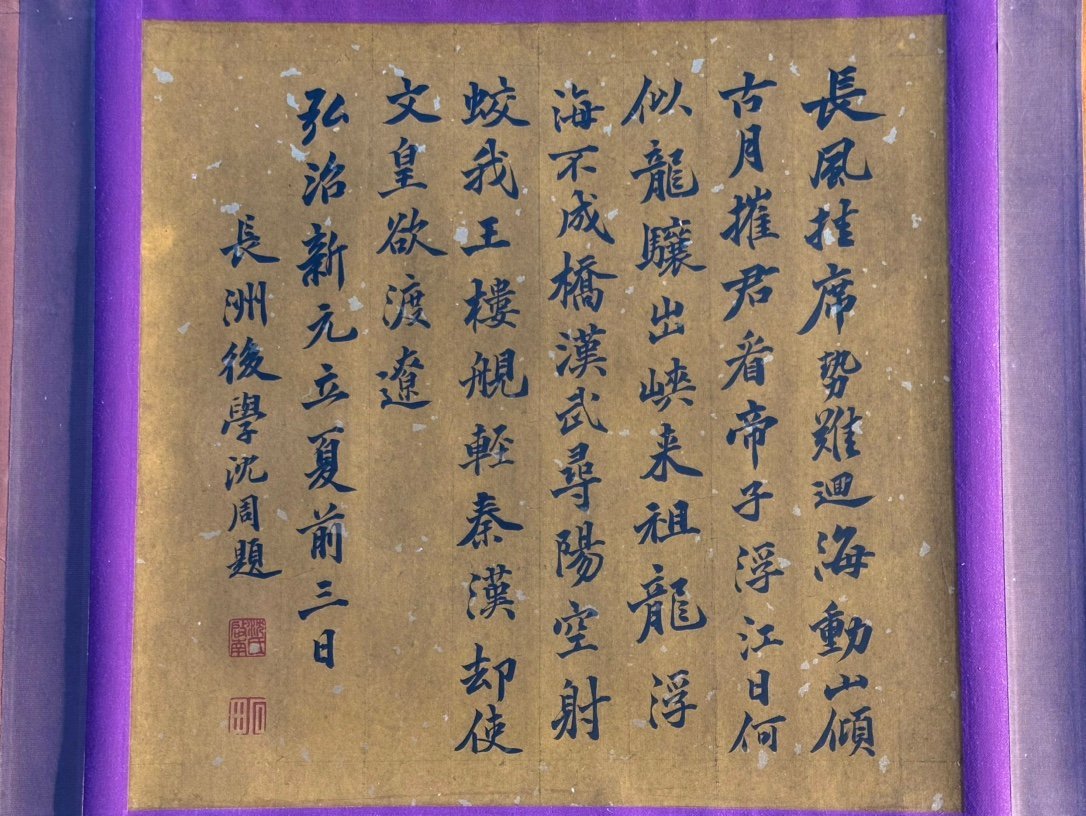 長風挂席勢難迴海動山傾
古月摧君看帝子浮江日何
似龍驤出峽来祖龍浮
海不成橋漢武尋陽空射
蛟我王樓艦輕秦漢却使
文皇欲渡遼
弘治新元立夏前三日
長洲後學沈周題
沈氏啟南